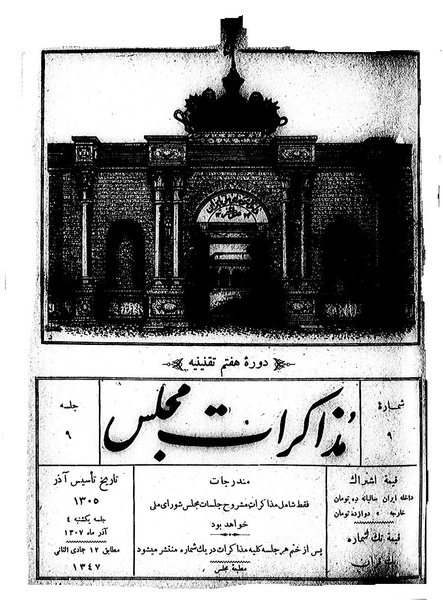 دورهٔ هفتم تقنینیه
شمارهٔ
۹
مذاکرات مجلس
جلسه
۹
قیمة اشتراك
داخله ایران سالیانه ده تومان
خارجه » دوازده تومان
قیمة تك شماره
یك قران
مندرجات
فقط شامل مذاکرات مشروح جلسات مجلس شورای ملی
خواهد بود
پس از ختم هر جلسه کلیه مذاکرات در یك شماره منتشر میشود
مطبعه مجلس
تاریخ تأسیس آذر
۱۳۰۵
جلسه یکشنبه ۴
آذر ماه ۱۳۰۷
مطابق ۱۲ جمادی الثانی
۱۳۴۷